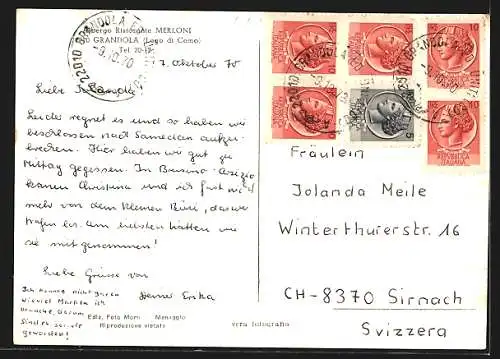 Albergo Ristorante MERLONI
GRANDOLA (Lago di Como)
Tel 20-
22010 GRANDOLA
-9.10.70
7. Oktober 70
Liebe Jolanda
Leider regnet es und so haben wir
beschlossen nach Samedan aufzu-
brechen. Hier haben wir gut zu
Mittag gegessen. In
kamen Christina und ich fast nicht
mehr von dem kleinen Büsi, das wir
trafen los. Am liebsten hätten wir
sie mit genommen!
Liebe Grüsse von
Deine Erika
Ich konnte nicht genau
wieviel Marken ich
brauche, darum
sind es so viele
geworden!
Ediz. Foto Menaggio
Riproduzione vietata
vera fotografia
REPUBBLICA
ITALIANA
Fräulein
Jolanda Meile
Winterthurerstr. 16
CH-8370 Sirnach
Svizzera